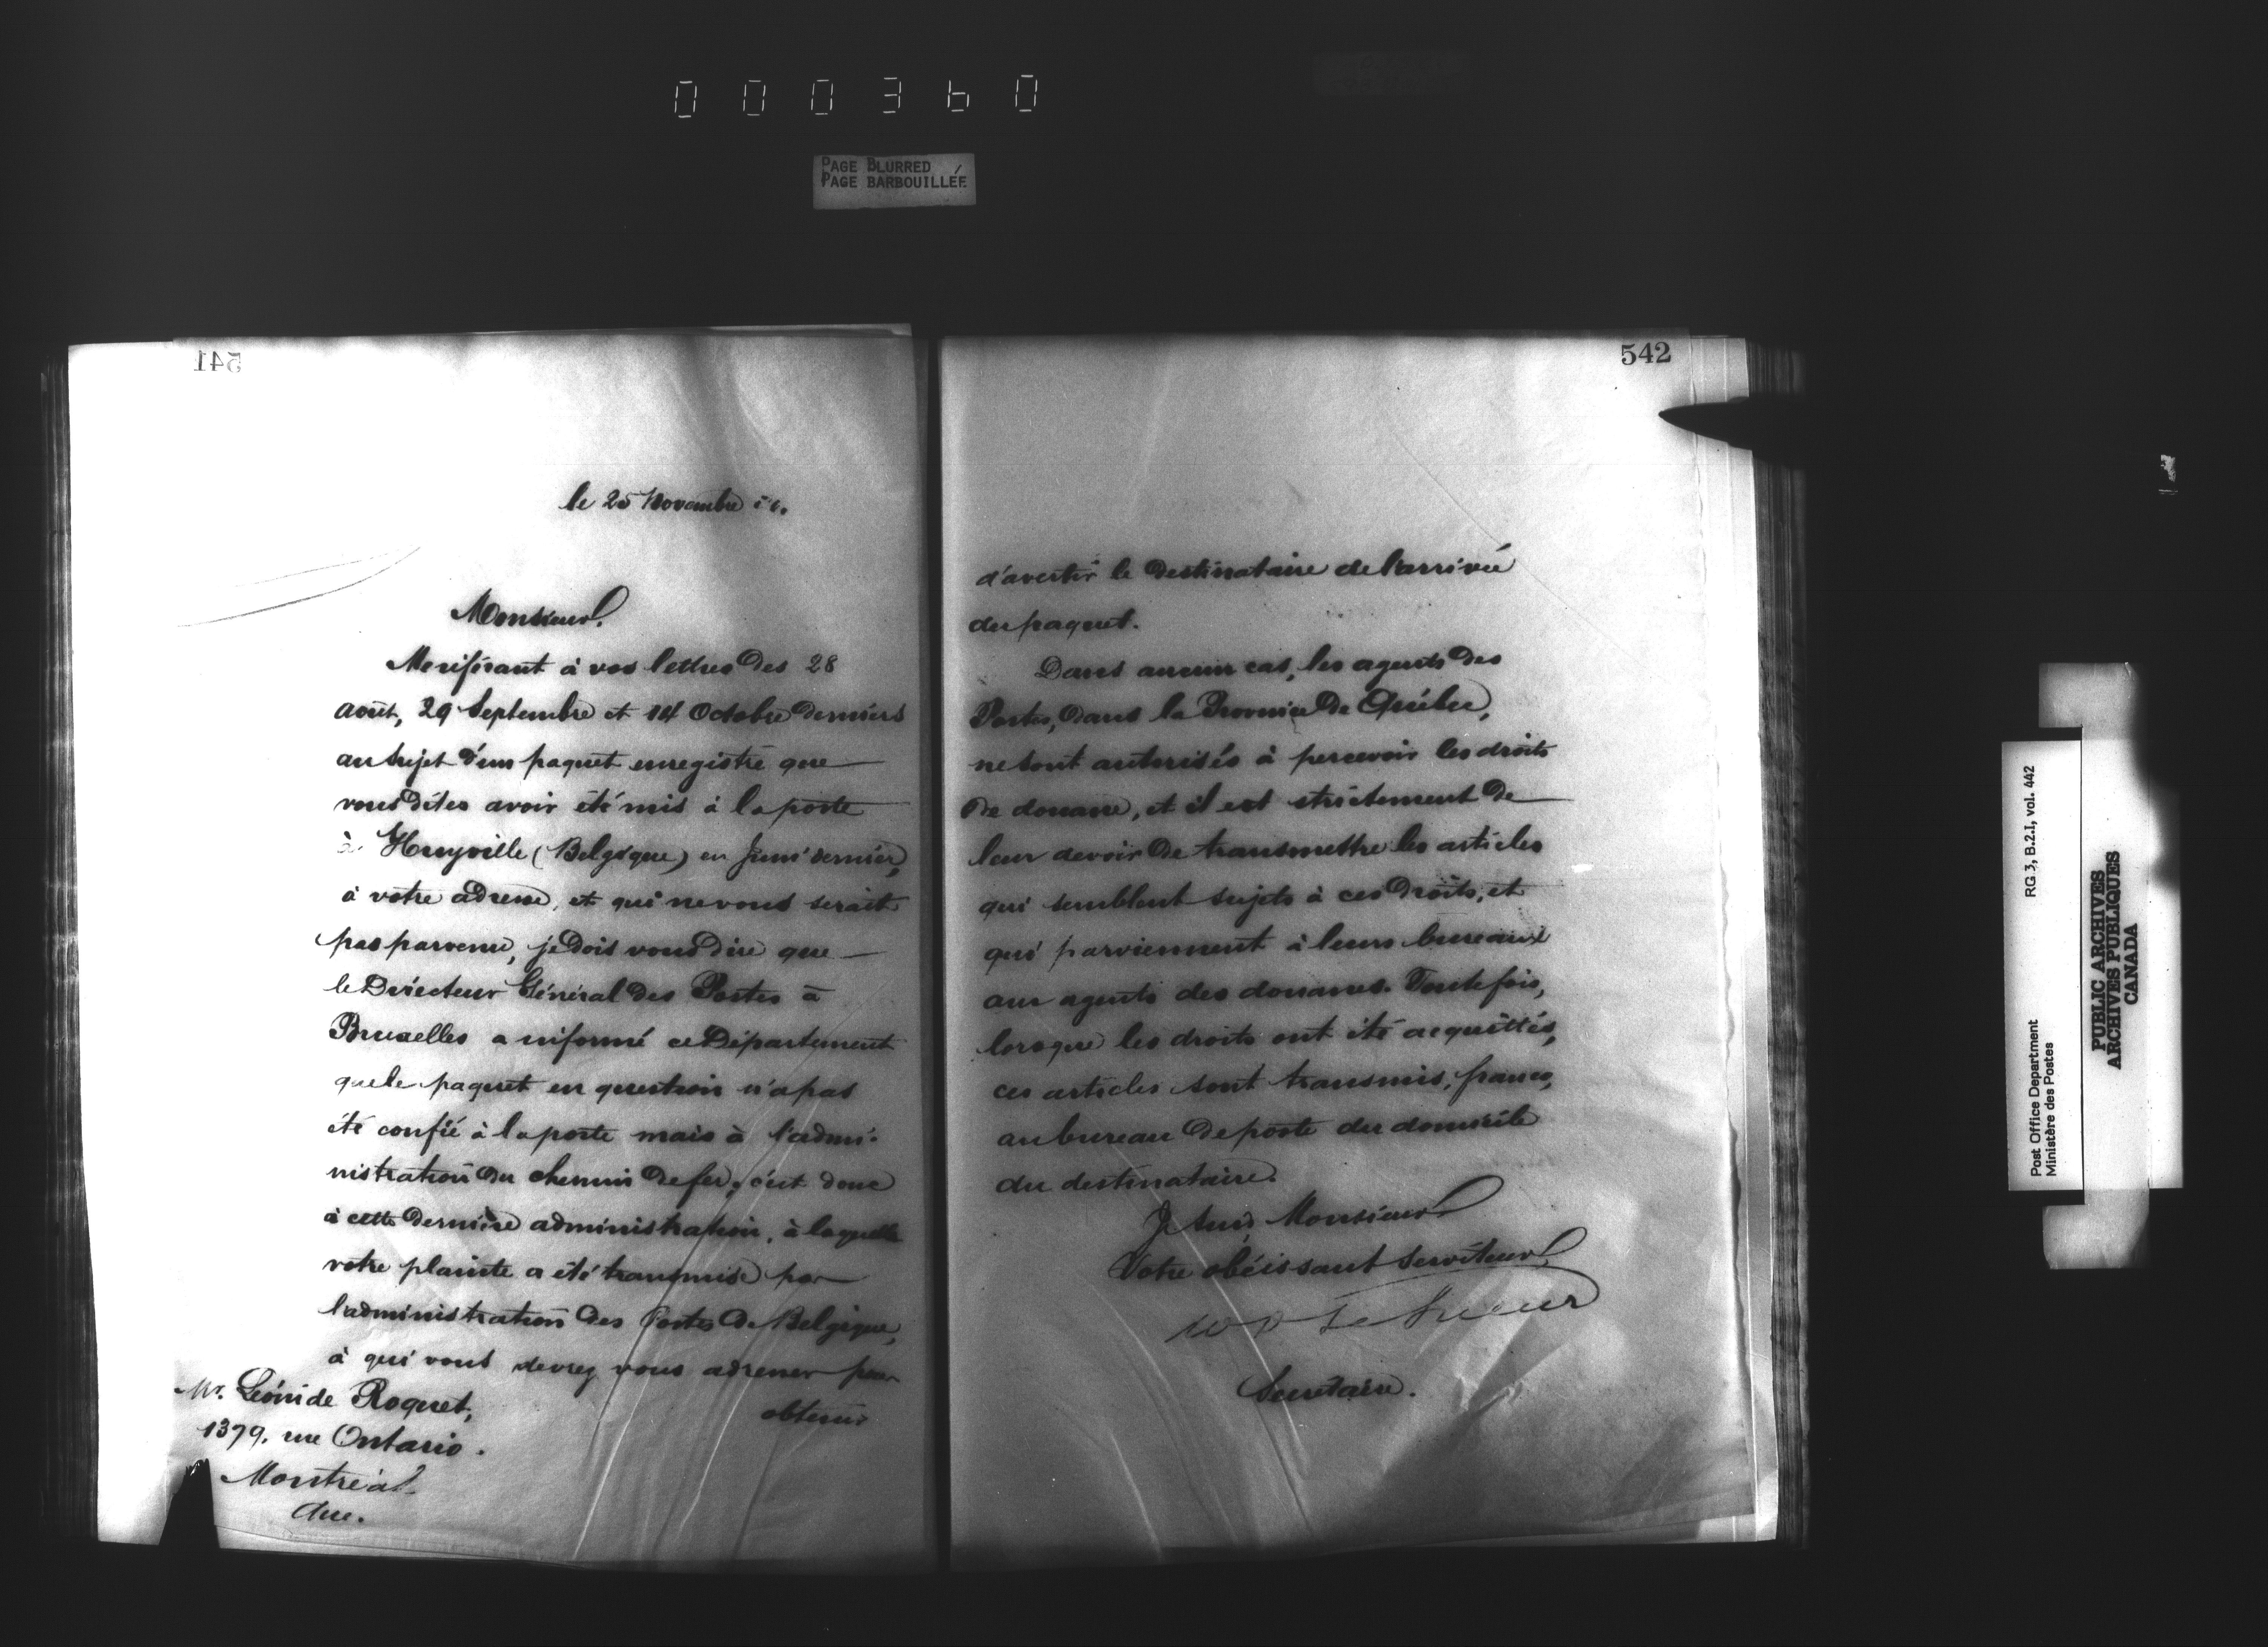 000360
PAGE BLURRED
PAGE BARBOUILLÉE
541
le 25 Novembre
Monsieur.
Me référant à vos lettres des 28
août, 29 Septembre et 14 Octobre derniers
au sujet d'un paquet enregistré que
vous dites avoir été mis à la poste
à Huyville (Belgique) en Juin dernier,
à votre adresse, et qui ne vous serait
pas parvenu, je dois vous dire que
le Directeur Général des Postes à
Bruxelles a informé ce Département
que le paquet en question n'a pas
été confié à la poste mais à l'admi-
nistration du chemin de fer, c'est donc
à cette dernière administration, à laquelle
votre plainte a été transmise par
l'administration des Postes de Belgique,
à qui vous devrez vous adresser pour
obtenir
Mr. Léonide Roquet,
1379, rue Ontario.
Montréal.
Que.
542
d'avertir le destinataire de l'arrivée
du paquet.
Dans aucun cas, les agents des
Postes, dans la Province de Québec,
ne sont autorisés à percevoir les droits
de douane, et il est strictement de
leur devoir de transmettre les articles
qui semblent sujets à ces droits, et
qui parviennent à leurs bureaux
aux agents des douanes. Toutefois,
lorsque les droits ont été acquittés,
ces articles sont transmis, franco,
au bureau de poste du domicile
du destinataire.
Je suis, Monsieur
Votre obéissant serviteur,
W D Le Sueur
Secrétaire.
Post Office Department
Ministère des Postes
RG 3, B.2.I, vol. 442
PUBLIC ARCHIVES
ARCHIVES PUBLIQUES
CANADA